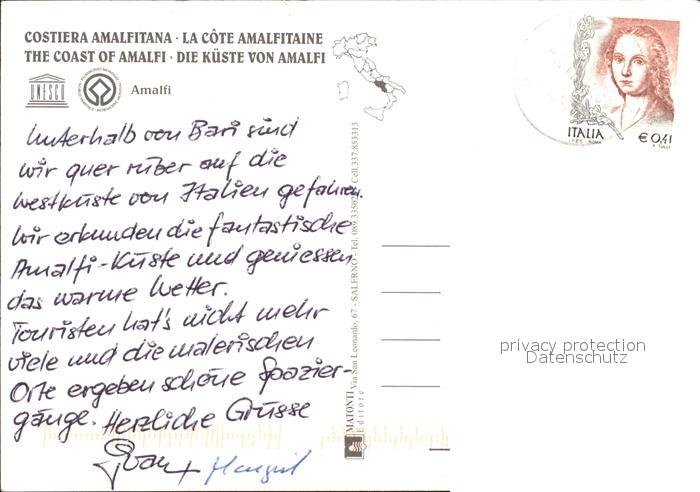 COSTIERA AMALFITANA · LA CÔTE AMALFITAINE
THE COAST OF AMALFI · DIE KÜSTE VON AMALFI
UNESCO
Amalfi
Unterhalb von Bari sind
wir quer rüber auf die
Westküste von Italien gefahren.
Wir erkunden die fantastische
Amalfi-Küste und geniessen
das warme Wetter.
Touristen hat's nicht mehr
viele und die malerischen
Orte ergeben schöne Spazier-
gänge. Herzliche Grüsse
+ Margrit
MATONTI Via San Leonardo, 67 - SALERNO - Tel. Cell.337.853313
Editore
ITALIA
€ 0,41
privacy protection
Datenschutz